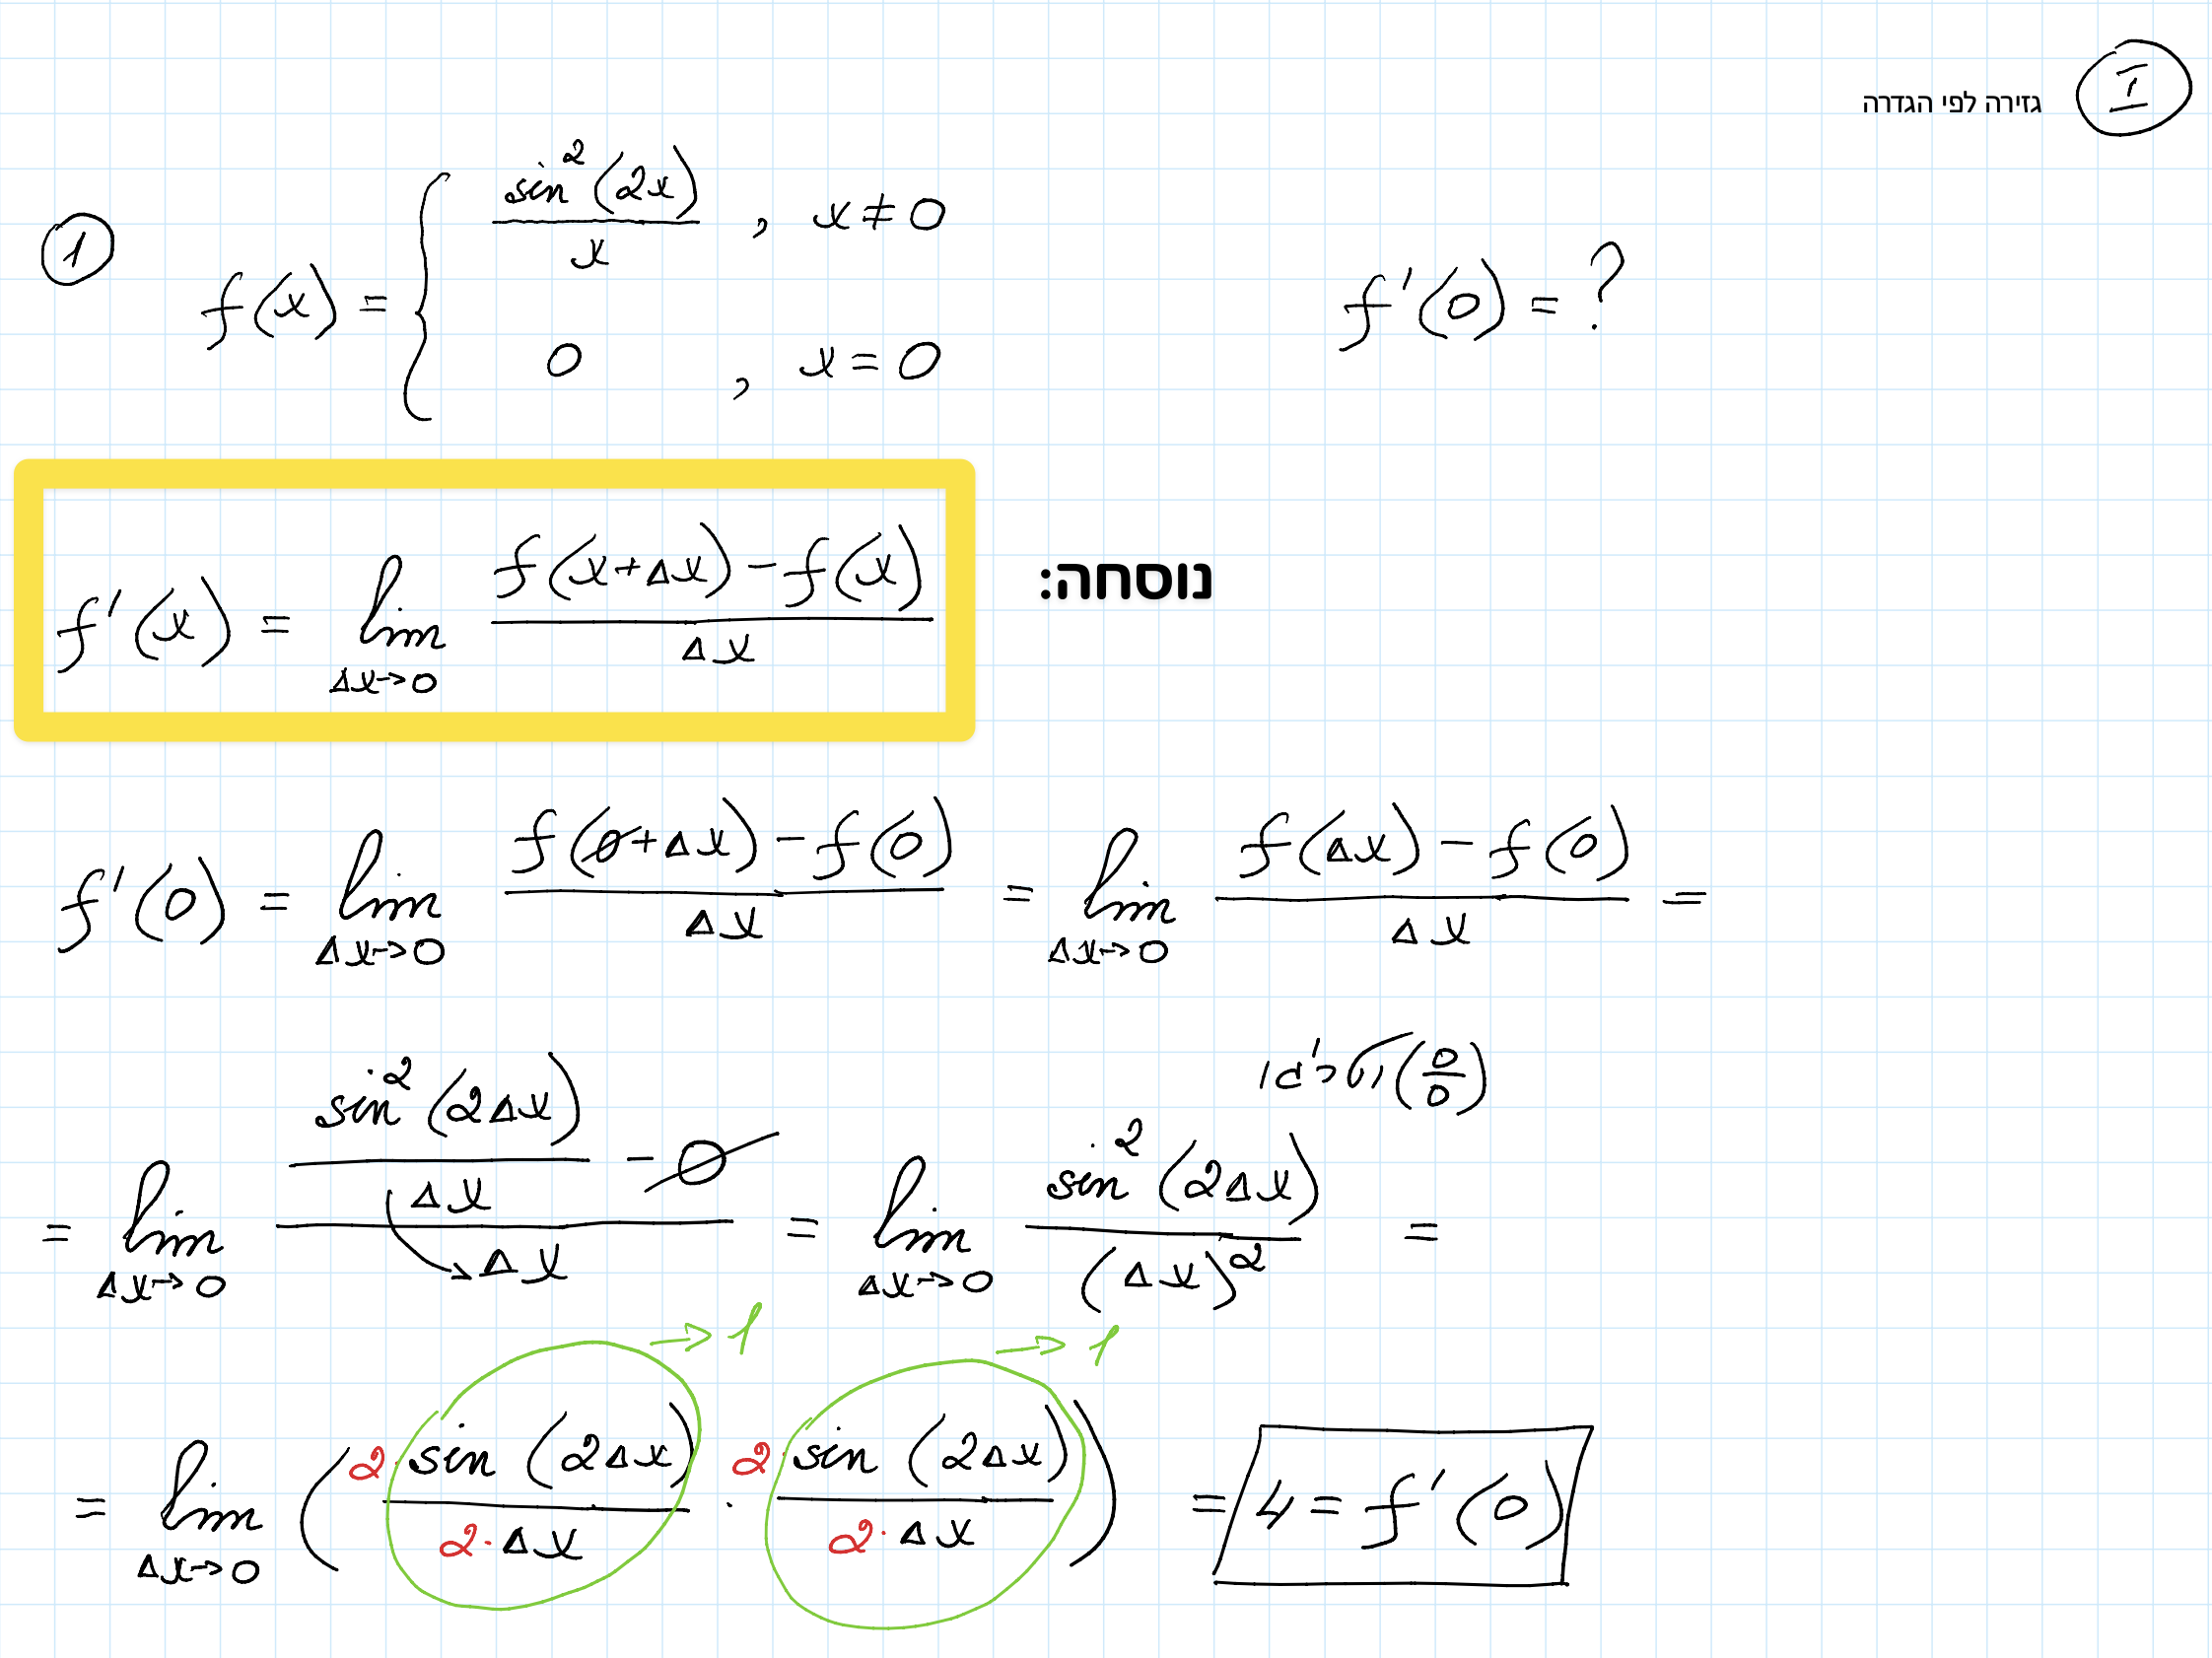 גזירה לפי הגדרה Ⓘ
① f(x) = { sin²(2x)/x , x ≠ 0
0 , x = 0
f'(0) = ?
f'(x) = lim_{Δx→0} (f(x+Δx) - f(x))/Δx
נוסחה:
f'(0) = lim_{Δx→0} (f(0+Δx) - f(0))/Δx = lim_{Δx→0} (f(Δx) - f(0))/Δx =
(0/0)
= lim_{Δx→0} (sin²(2Δx)/Δx - 0)/Δx = lim_{Δx→0} sin²(2Δx)/(Δx)² =
→ 1 → 1
= lim_{Δx→0} (2· sin(2Δx)/(2·Δx) · 2· sin(2Δx)/(2·Δx)) = 4 = f'(0)